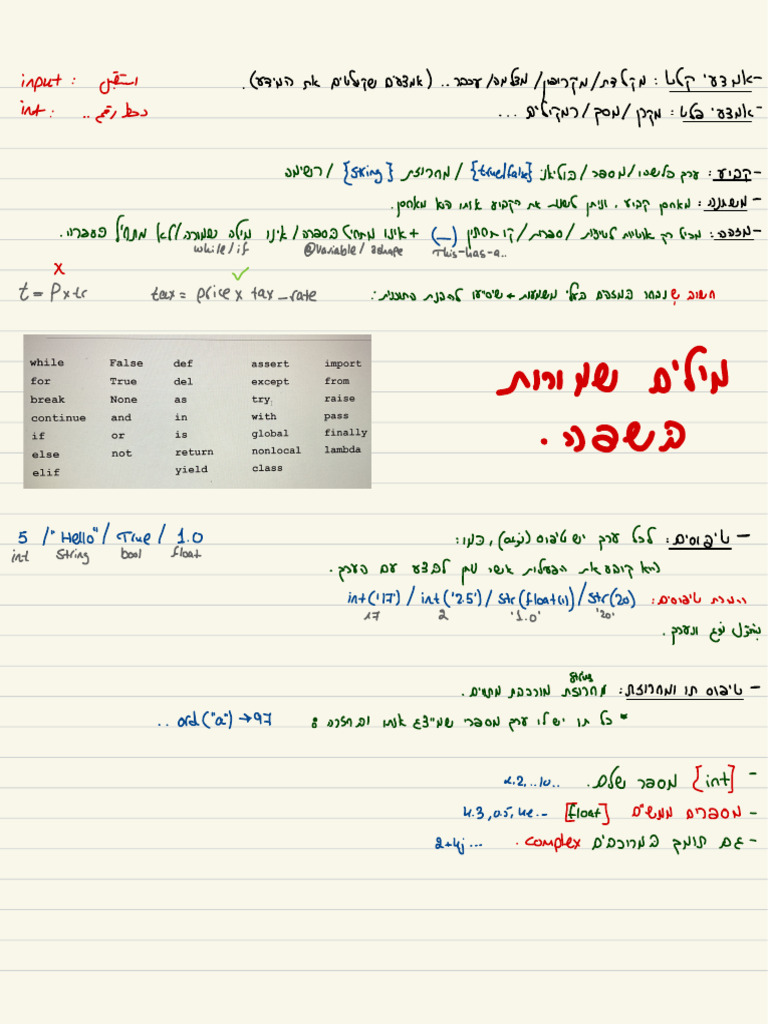 -אמצעי קלט: מקלדת/מקרופון/מצלמה/עכבר.. (אמצעים שקולטים את המידע).
input: استقبل
-אמצעי פלט: מקרן/מסך/רמקולים ...
int: خط رقم ..
-קבוע: ערך כלשהו/מספר/בוליאני {true/false}/מחרוזת {string}/רשימה
-משתנה: מאחסן קבוע, וניתן לשנות את הקבוע אותו הוא מאחסן.
-מזהה: מכיל רק אותיות לטיניות/ספרות/קו תחתון (_) + אינו מתחיל בספרה/אינו מילה שמורה/לא מתחיל בספרה.
while/if @variable/ashape This-has-a..
x ✓
חשוב ש נבחר במזהם בעלי משמעות + שיסייעו להבנת התוכנית:
tax = price x tax_rate
t = P x tr
מילים שמורות
בשפה.
while False def assert import
for True del except from
break None as try raise
continue and in with pass
if or is global finally
else not return nonlocal lambda
elif yield class
- טיפוסים: לכל ערך יש טיפוס (סוג), כמו:
5 /"Hello"/ True / 1.0
int string bool float
הוא קובע את הפעולות אשר ניתן לבצע עם הערך.
המרת טיפוסים: int('17') / int('2.5') / str(float(1)) / str(20)
17 2 '1.0' '20'
סוג וערך.
string
- טיפוס תו ומחרוזת: מחרוזת מורכבת מתווים.
* כל תו יש לו ערך מספרי שמייצג אותו ובחזרה: ord("a") → 97 ..
- [int] מספר שלם. 1.2,..10..
- מספרים ממשיים [float] 4.3, 0.5, 4e..-
- גם תומך במרוכבים complex. 2+4j...